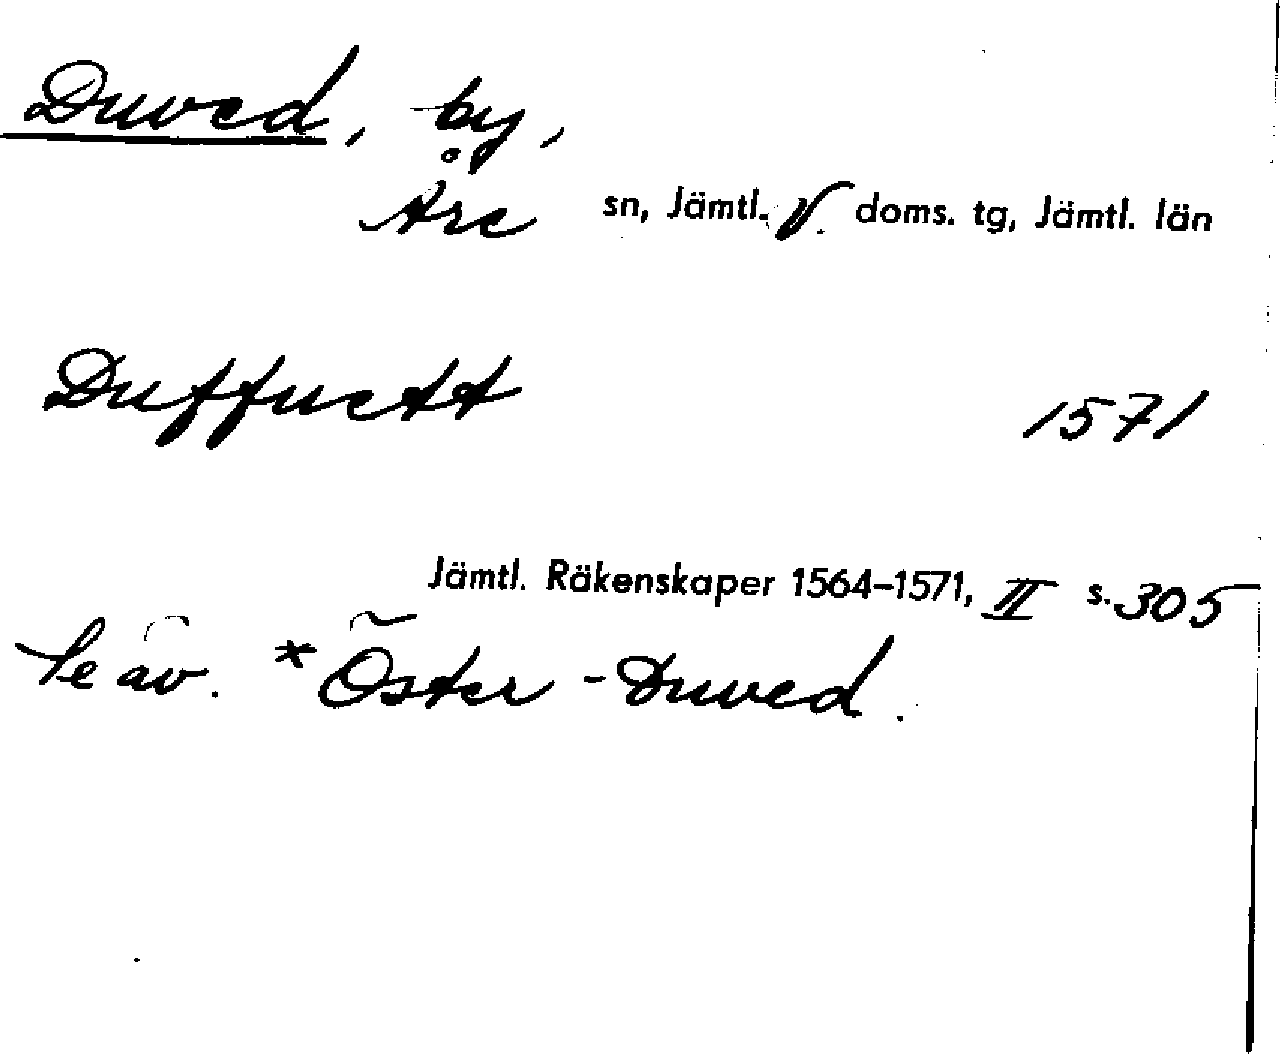 Duved, by,
Åre sn, Jämtl. V. doms. tg, Jämtl. län
Duffuett 1571
Jämtl. Räkenskaper 1564–1571, II s. 305
Se äv. *Öster-Duved.